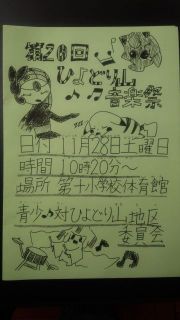 第20回
ひよどり山
音楽祭
日付 11月28日土曜日
時間 10時20分〜
場所 第十小学校体育館
青少対ひよどり山地区
委員会